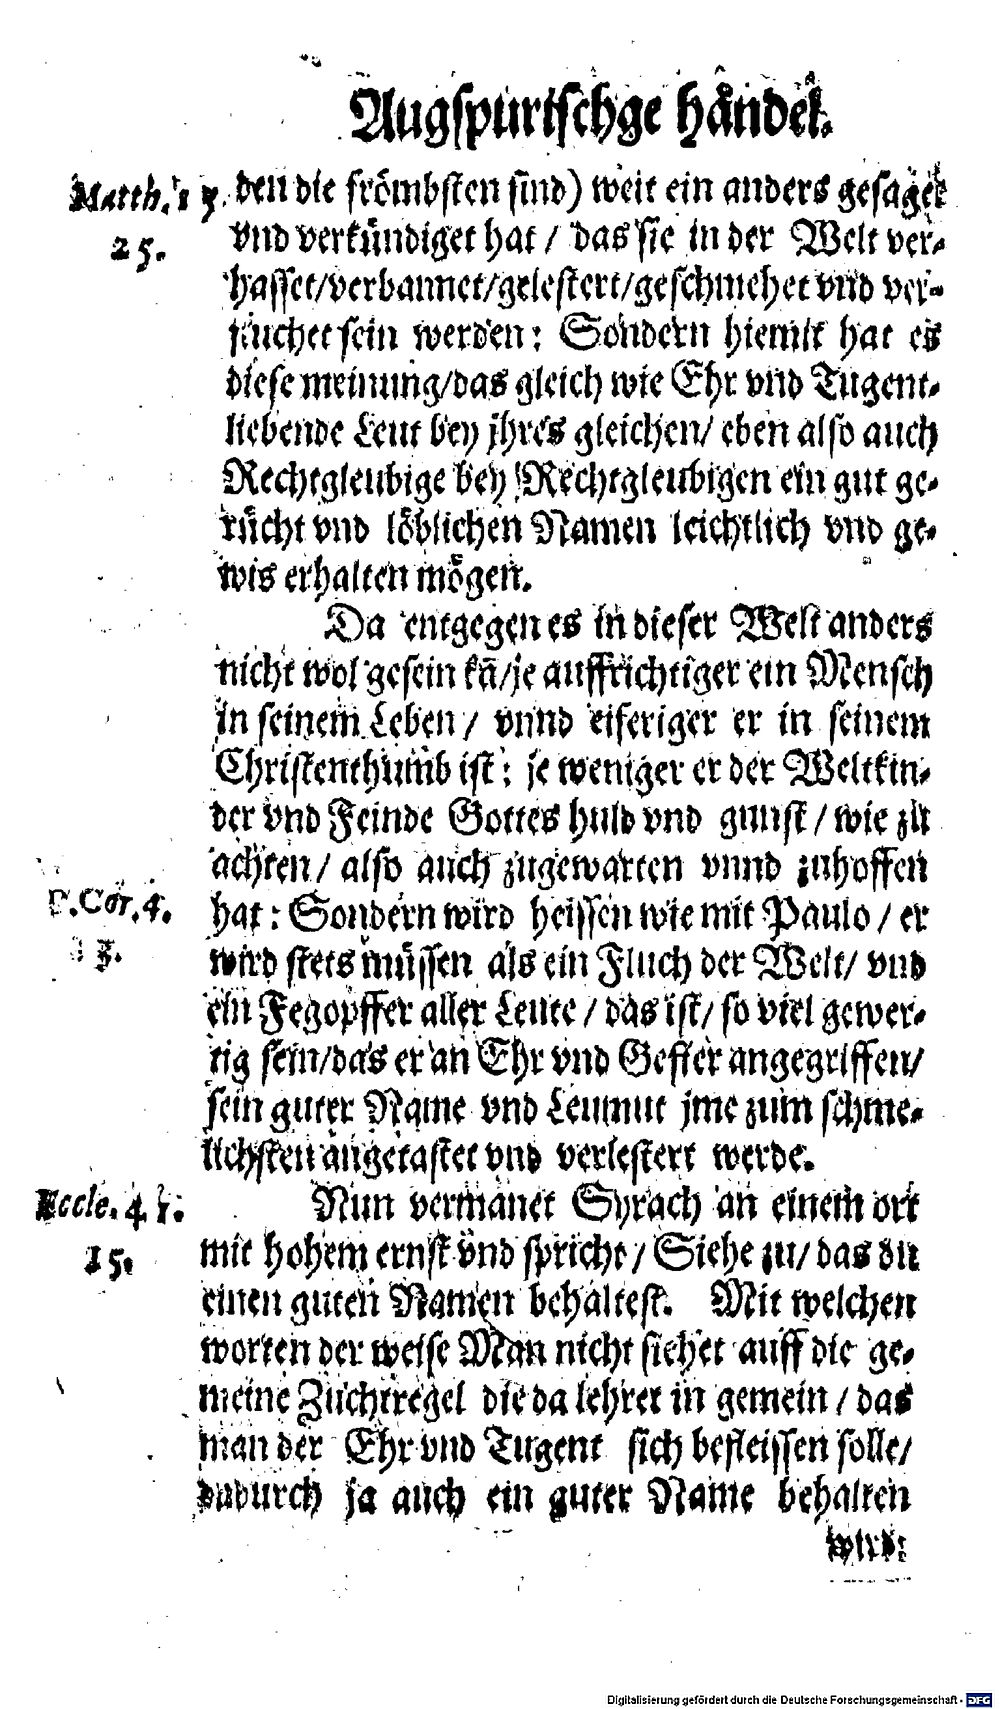 Augspurischge håndel.
Matth. 1
25.
den die frömbsten sind) weit ein anders gesaget
vnd verkündiget hat / das sie in der Welt ver-
hasset/verbannet/gelestert/geschmehet vnd ver-
fluchet sein werden: Sondern hiemit hat es
diese meinung/das gleich wie Ehr vnd Tugent-
liebende Leut bey jhres gleichen/ eben also auch
Rechtgleubige bey Rechtgleubigen ein gut ge-
rücht vnd löblichen Namen leichtlich vnd ge-
wis erhalten mögen.
Da entgegen es in dieser Welt anders
nicht wol gesein kañ/je auffrichtiger ein Mensch
in seinem Leben / vnnd eiferiger er in seinem
Christenthumb ist: je weniger er der Weltkin-
der vnd Feinde Gottes huld vnd gunst / wie zu
achten / also auch zugewarten vnnd zuhoffen
1. Cor. 4.
13.
hat: Sondern wird heissen wie mit Paulo / er
wird stets müssen als ein Fluch der Welt/ vnd
ein Fegopffer aller Leute / das ist/ so viel gewer-
tig sein/das er an Ehr vnd Gefier angegriffen/
sein guter Name vnd Leumut jme zum schme-
lichsten angetastet vnd verlestert werde.
Eccle. 41.
15.
Nun vermanet Syrach an einem ort
mit hohem ernst vnd spricht / Siehe zu/ das du
einen guten Namen behaltest. Mit welchen
worten der weise Man nicht siehet auff die ge-
meine Zuchtregel die da lehret in gemein / das
man der Ehr vnd Tugent sich befleissen solle/
dadurch ja auch ein guter Name behalten
wird:
Digitalisierung gefördert durch die Deutsche Forschungsgemeinschaft - DFG